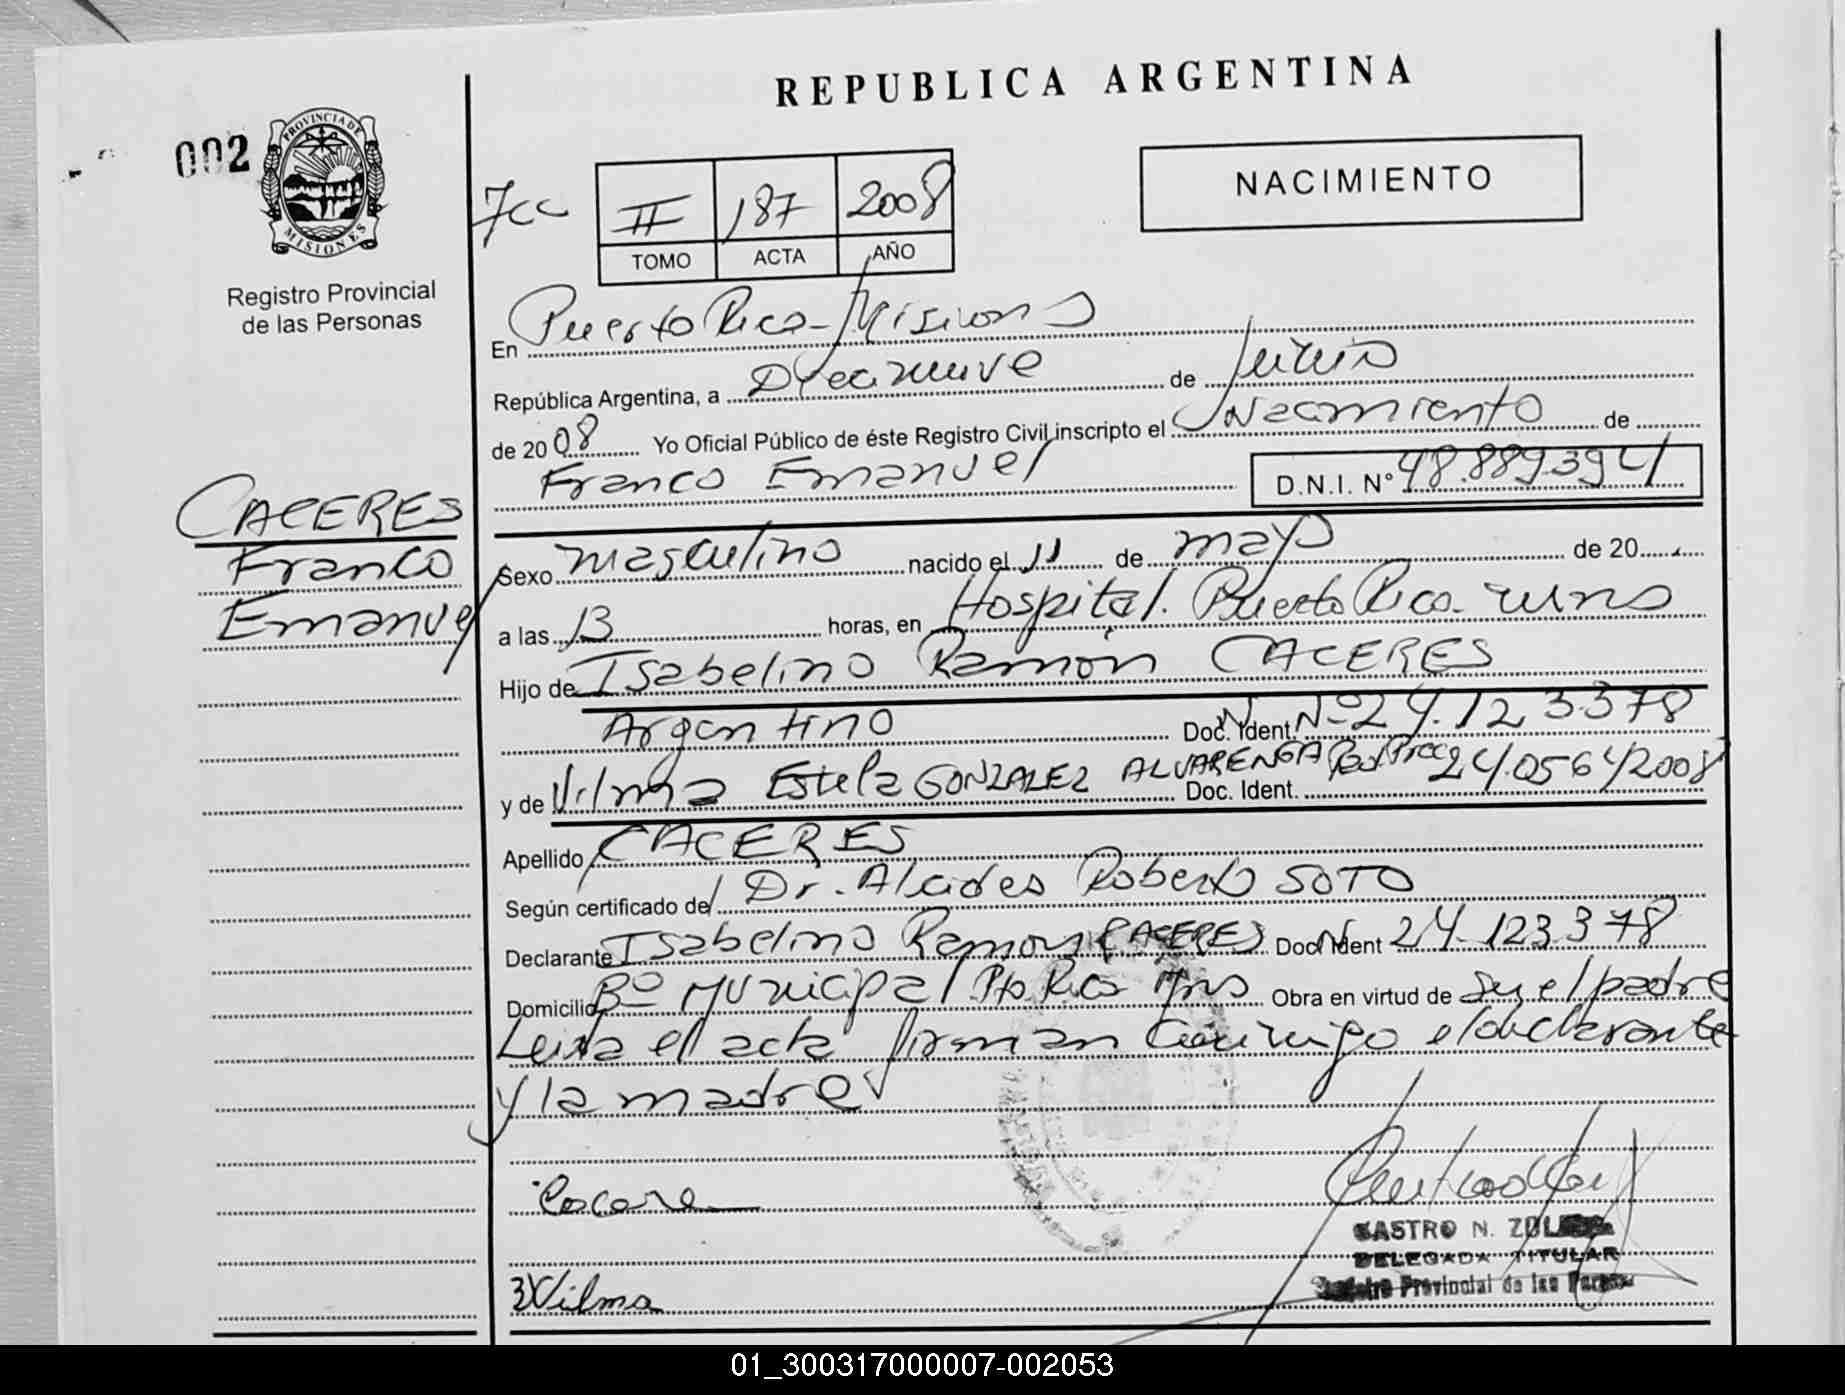 REPUBLICA ARGENTINA
002
PROVINCIA DE
MISIONES
Registro Provincial
de las Personas
7cc
II 187 2008
TOMO ACTA AÑO
NACIMIENTO
En Puerto Rico - Misiones
República Argentina, a Diecinueve de Junio
de 2008 Yo Oficial Público de éste Registro Civil inscripto el Nacimiento de
Franco Emanuel D.N.I. Nº 48.889.394
CACERES
Franco
Emanuel
Sexo masculino nacido el 11 de mayo de 20
a las 13 horas, en Hospital. Puerto Rico -
Hijo de Isabelino Ramón CACERES
Argentino Doc. Ident. Nº 24.123.378
y de Vilma Estela GONZALEZ ALVARENGA Doc. Ident. 24.0564/2008
Apellido CACERES
Según certificado del Dr. Alcides Roberto SOTO
Declarante Isabelino Ramon CACERES Doc. Ident 24.123.378
Domicilio Bº Municipal Pto Rico Mns Obra en virtud de Ser el padre
Leida el acta firman conmigo el declarante
y la madre
Vilma
CASTRO N.
DELEGADA TITULAR
Registro Provincial de las Personas
01_300317000007-002053